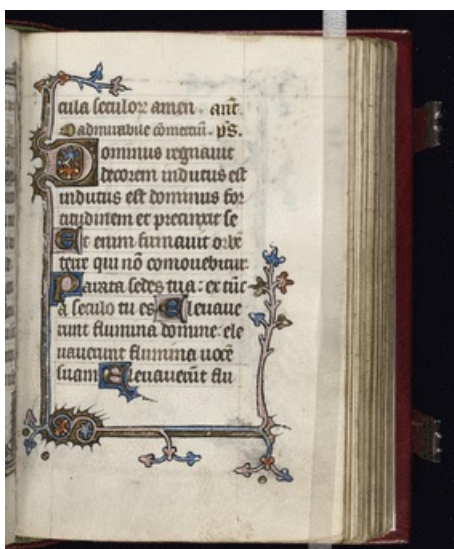 cula seculor amen . añt.
O admirabile cōmerciū . pš.
Dominus regnauit
decorem indutus est
indutus est dominus for
titudinem et precinxit se
Et enim firmauit orbē
terre qui nō comouebitur.
Parata sedes tua: ex tūc
a seculo tu es Eleuaue
runt flumina domine: ele
uauerunt flumina uocē
suam Eleuauerūt flu